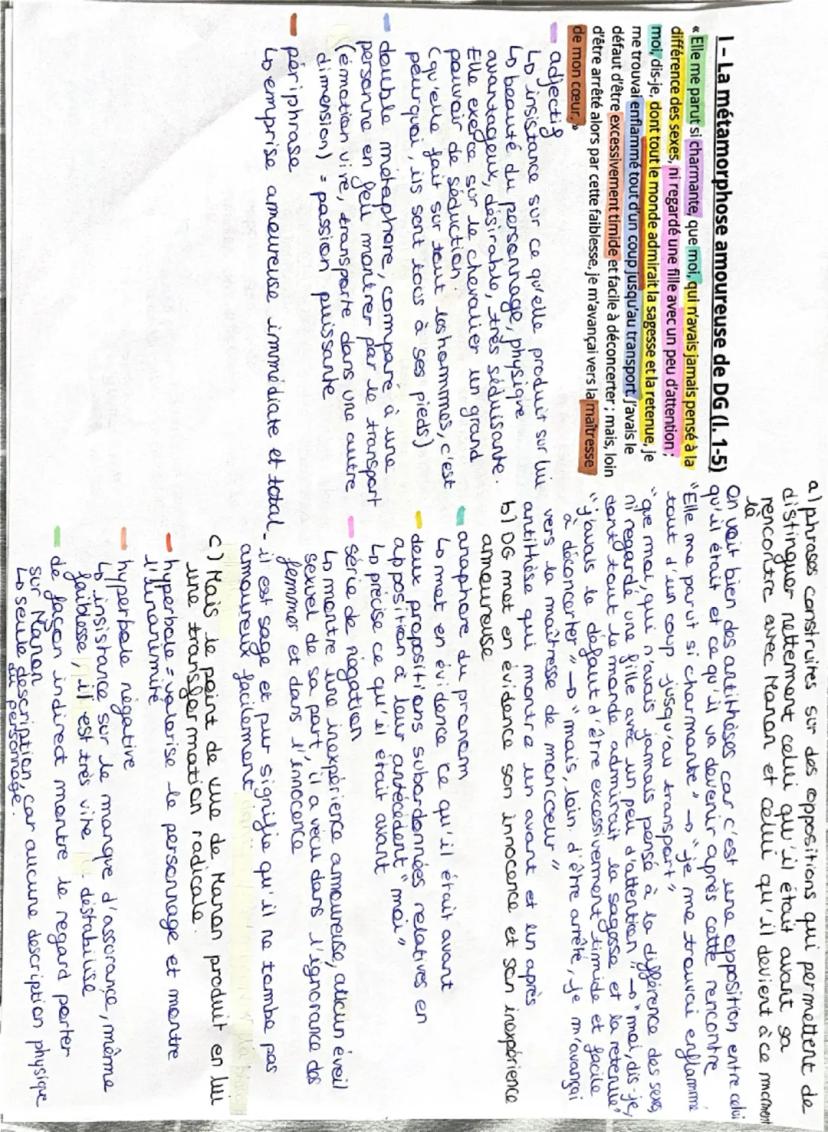 I – La métamorphose amoureuse de DG (l. 1-5)
« Elle me parut si charmante, que moi, qui n'avais jamais pensé à la
différence des sexes, ni regardé une fille avec un peu d'attention ;
moi, dis-je, dont tout le monde admirait la sagesse et la retenue, je
me trouvai enflammé tout d'un coup jusqu'au transport. J'avais le
défaut d'être excessivement timide et facile à déconcerter ; mais, loin
d'être arrêté alors par cette faiblesse, je m'avançai vers la maîtresse
de mon cœur. »
- adjectif
↳ insistance sur ce qu'elle produit sur lui
↳ beauté du personnage, physique
avantageux, désirable, très séduisante.
Elle exerce sur le chevalier un grand
pouvoir de séduction.
(qu'elle fait sur tout les hommes, c'est
pourquoi, ils sont tous à ses pieds)
- double métaphore, comparé à une
personne en feu montrer par le transport
(émotion vive, transporte dans une autre
dimension) = passion puissante
- périphrase
↳ emprise amoureuse immédiate et total.
a) phrases construires sur des oppositions qui permettent de
distinguer nettement celui qu'il était avant sa
rencontre avec Manon et celui qu'il devient à ce moment
là
On voit bien des antithèses car c'est une opposition entre celui
qu'il était et ce qu'il va devenir après cette rencontre
"Elle me parut si charmante" → "je me trouvai enflammé
tout d'un coup jusqu'au transport"
"que moi, qui n'avais jamais pensé à la différence des sexes,
ni regardé une fille avec un peu d'attention" → "moi, dis-je,
dont tout le monde admirait la sagesse et la retenue"
"j'avais le défaut d'être excessivement timide et facile
à déconcerter" → "mais, loin d'être arrêté, je m'avançai
vers la maîtresse de mon coeur"
antithèse qui montre un avant et un après
b) DG met en évidence son innocence et son inexpérience
amoureuse
- anaphore du pronom
↳ met en évidence ce qu'il était avant
- deux propositions subordonnées relatives en
apposition à leur antécédent "moi"
↳ précise ce qu'il était avant
- série de négation
↳ montre une inexpérience amoureuse, aucun éveil
sexuel de sa part, il a vécu dans l'ignorance des
femmes et dans l'innocence
- il est sage et pur signifie qu'il ne tombe pas
amoureux facilement
c) Mais le point de vue de Manon produit en lui
une transformation radicale.
- hyperbole = valorise le personnage et montre
l'unanimité
- hyperbole négative
↳ insistance sur le manque d'assurance, même
faiblesse, il est très vite déstabilisé
- de façon indirect montre le regard porter
sur Manon
↳ seule description car aucune description physique
du personnage.